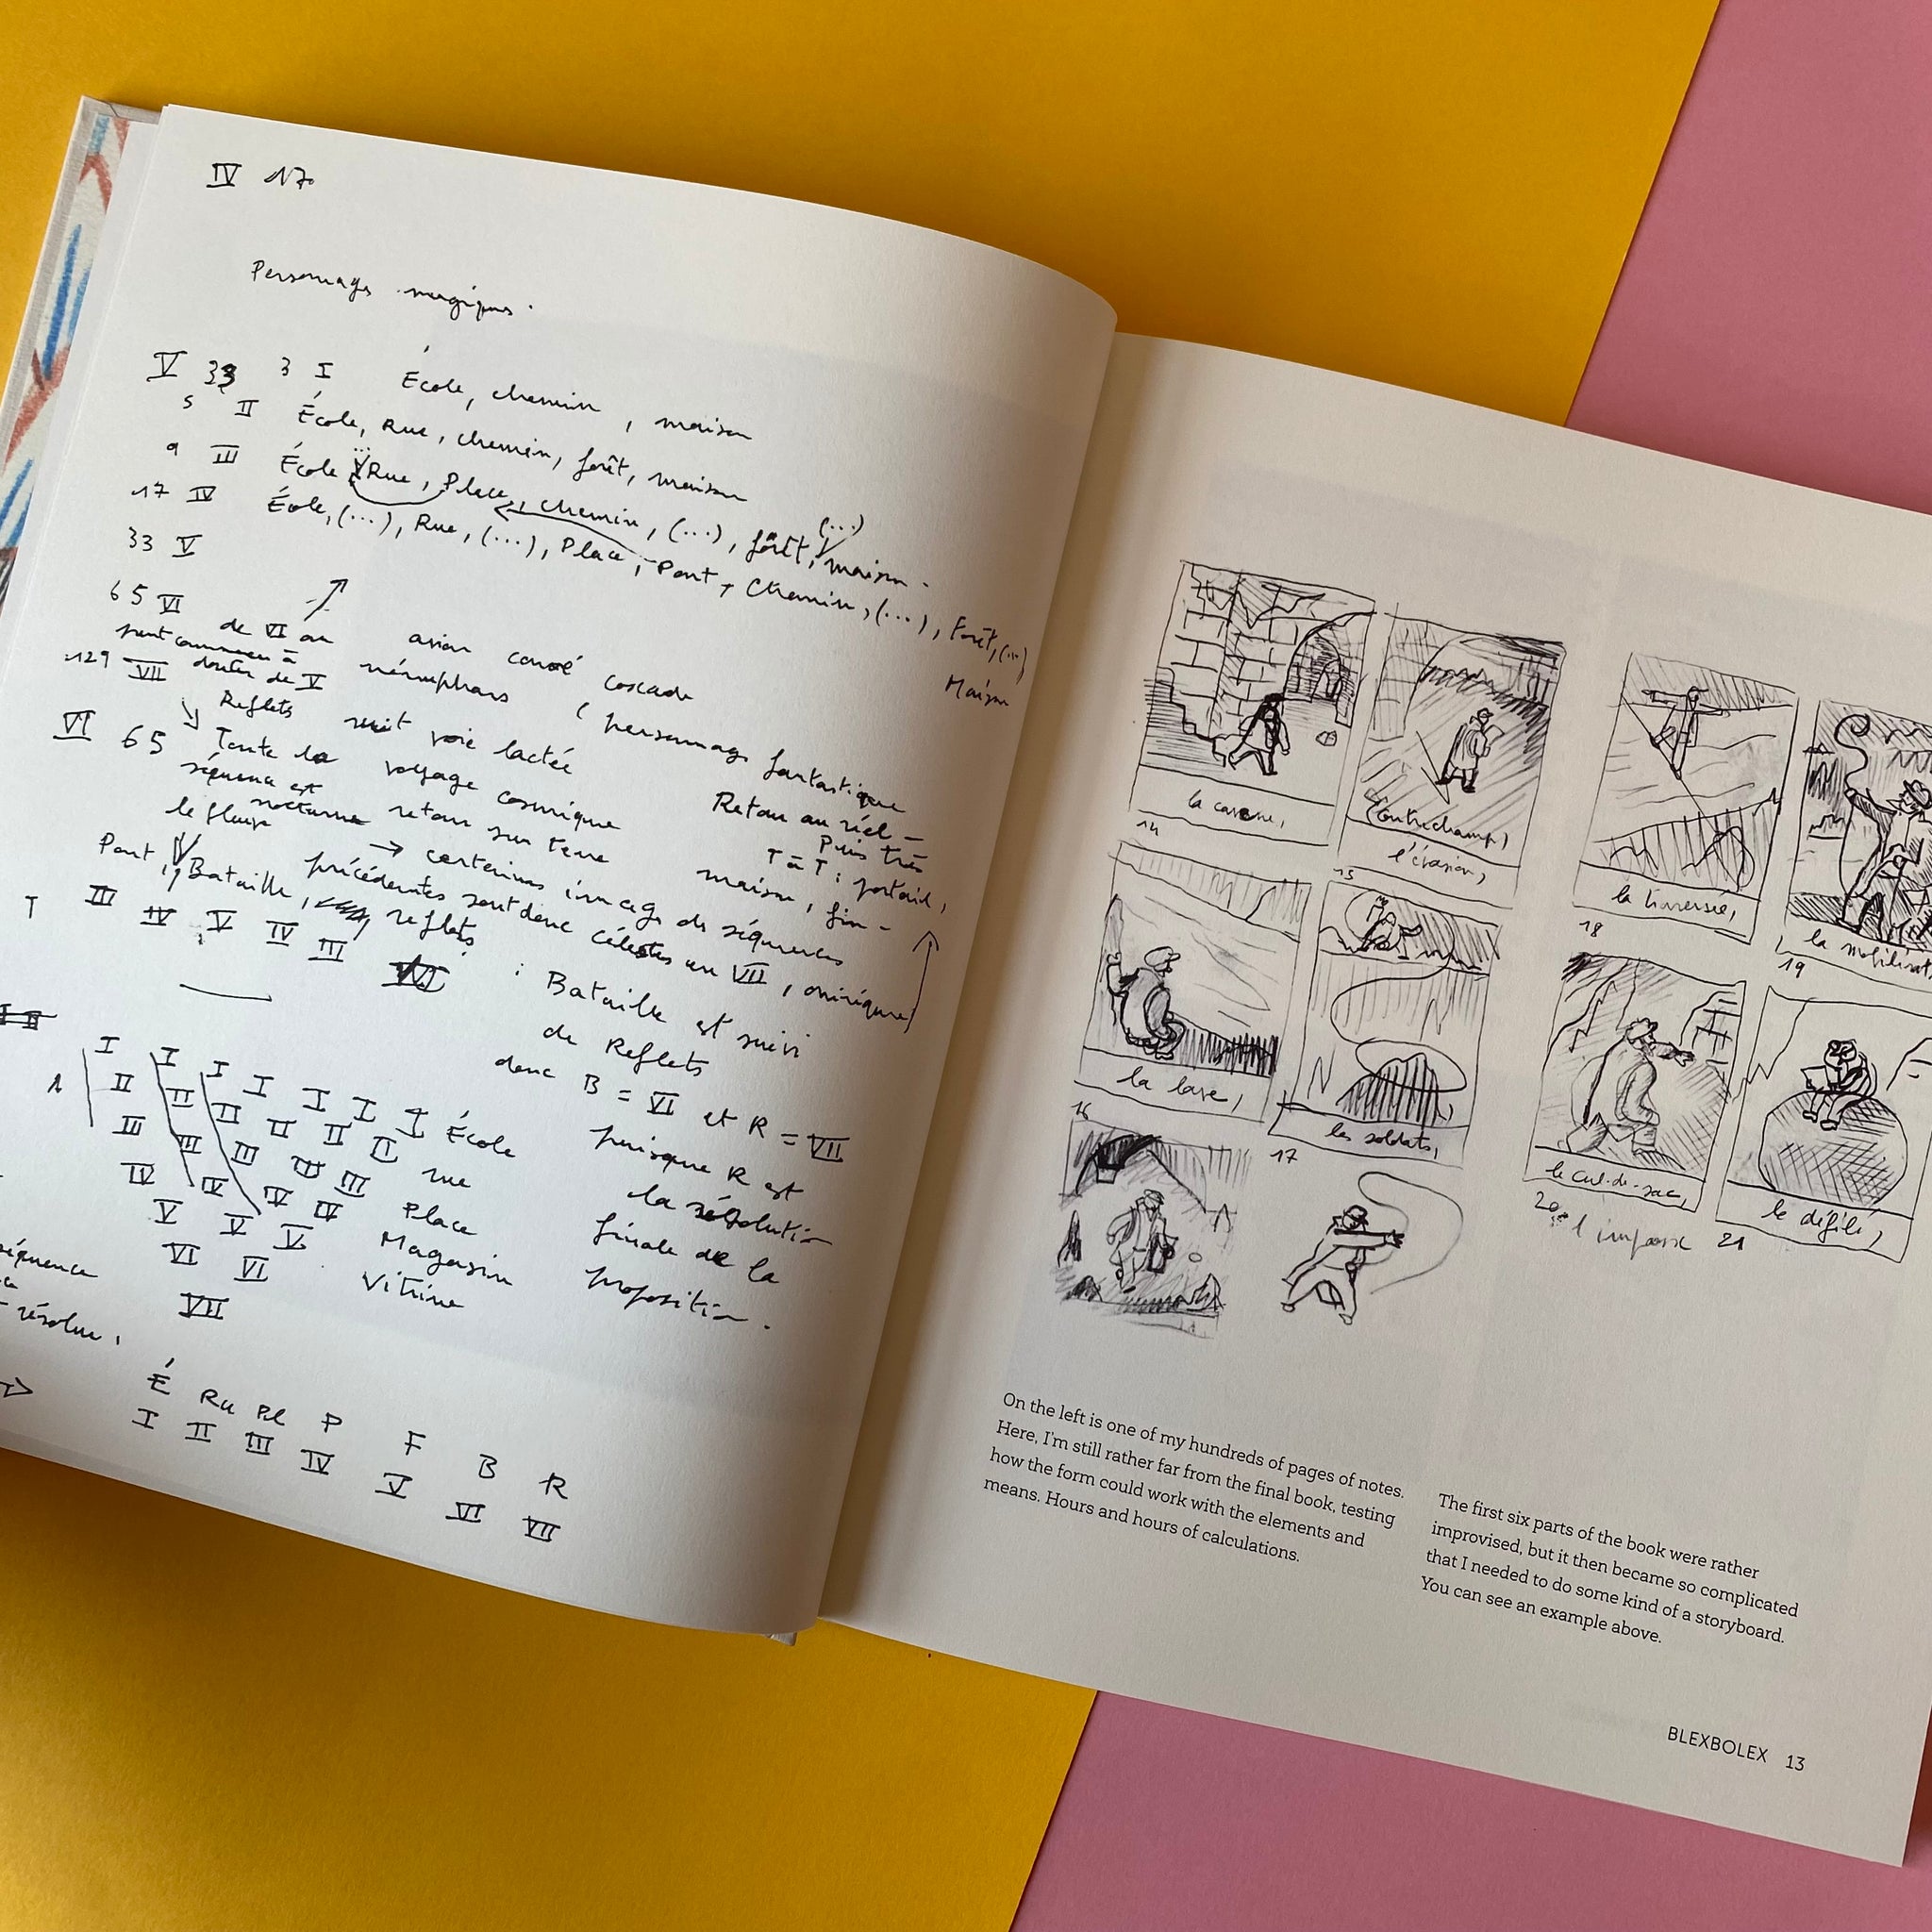 IV 17
Personnages magiques.
V 33 3 I École, chemin, maison
5 II École, Rue, chemin, forêt, maison
9 III École, Rue, Place, chemin, (...), forêt, (...) maison.
17 IV École, (...), Rue, (...), Place, Pont, Chemin, (...), Forêt, (...)
Maison
33 V
65 VI de VI on avion cascade
peut commencer à
douter de V nénuphars, personnages fantastique
129 VII
Reflets nuit voie lactée Retour au réel –
VI 65 Toute la voyage cosmique Puis très
séquence est
nocturne retour sur terre T à T : portail,
le fleuve maison, fin –
Pont, Bataille, reflets
→ certaines images de séquences
précédentes sont donc célestes en VII, oniriques
T III IV V IV III
: Bataille est suivi
de Reflets
donc B = VI et R = VII
puisque R est
la résolution
finale de la
proposition.
1
I I I I I I I École
II II II II II II rue
III III III III III Place
IV IV IV IV Magasin
V V V Vitrine
VI VI
VII
séquence
résolue.
É Ru Pl P F B R
I II III IV V VI VII
la caverne,
14
(Contrechamp)
l'évasion,
15
la lave,
16
les soldats,
17
la traversée,
18
la mobilisat
19
le cul-de-sac,
20 l'impasse
le défilé,
21
On the left is one of my hundreds of pages of notes.
Here, I'm still rather far from the final book, testing
how the form could work with the elements and
means. Hours and hours of calculations.
The first six parts of the book were rather
improvised, but it then became so complicated
that I needed to do some kind of a storyboard.
You can see an example above.
BLEXBOLEX 13